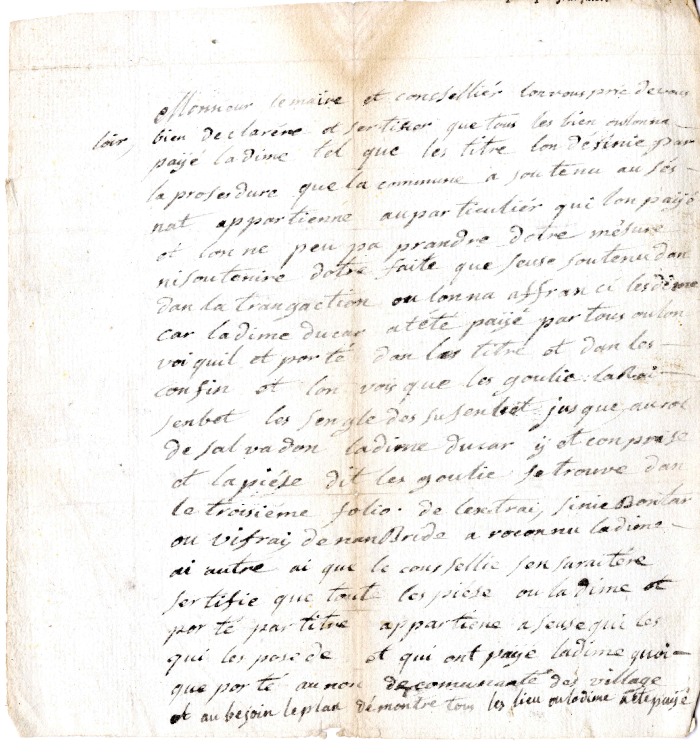 Monnour lemaire et conseselliér lonvous prie devous
loir, bien declarére et sertifier que tous les bien oulonna
payé ladime tel que les titre lon désinie par
la proserdure que la commune a soutenu au sés-
nat appartienné auparticulier qui lon payé
et lon ne peu pa prandre dotre mésure
nisoutenire dotre faite que seuse soutenu dan
dan la trangaction ou lonna affranci les dime
car ladime ducar atété payé partous oulon
voi quil et porté dan les titre et dan les-
confin et lon vois que les goulie: la Roi-
senbet les sengle des susenbet jusque au roc
de salvadon ladime ducar ÿ et conprise
et lapiése dit les goulie se trouve dan
le troisiéme folio. de lextrai, sinié
ou vifrai denanBride a reconnu ladime-
ai autre ai que le coursellie sensaraitére
sertifie que tout les piése ou ladime et
porté partitre appartiene aseuse qui les
qui les posede et qui ont payé ladime quoi-
que porté aunon de comunauté des village
et au besoin leplan démontre tous les lieu ouladime aétépaÿé